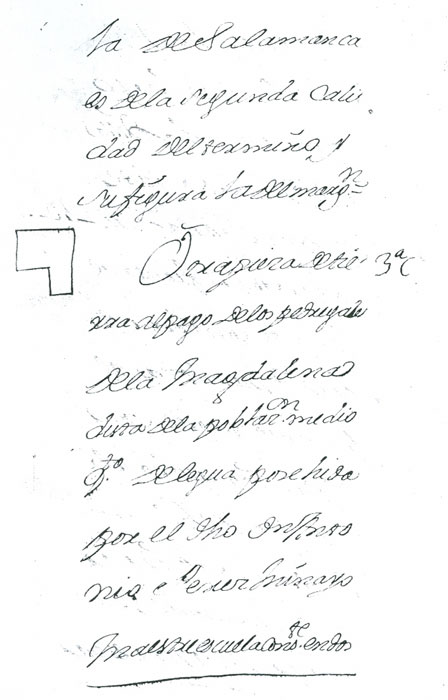 la de Salamanca
es dela segunda cali
dad del termino, y
su figura la del margn
Otra pieza de tie 3ª C
rra al pago de los pedregale
dela Magdalena
dista dela poblazn medio
qto de legua posehida
por el dho Dn Anto
nio
Maestre escuela conste en dos